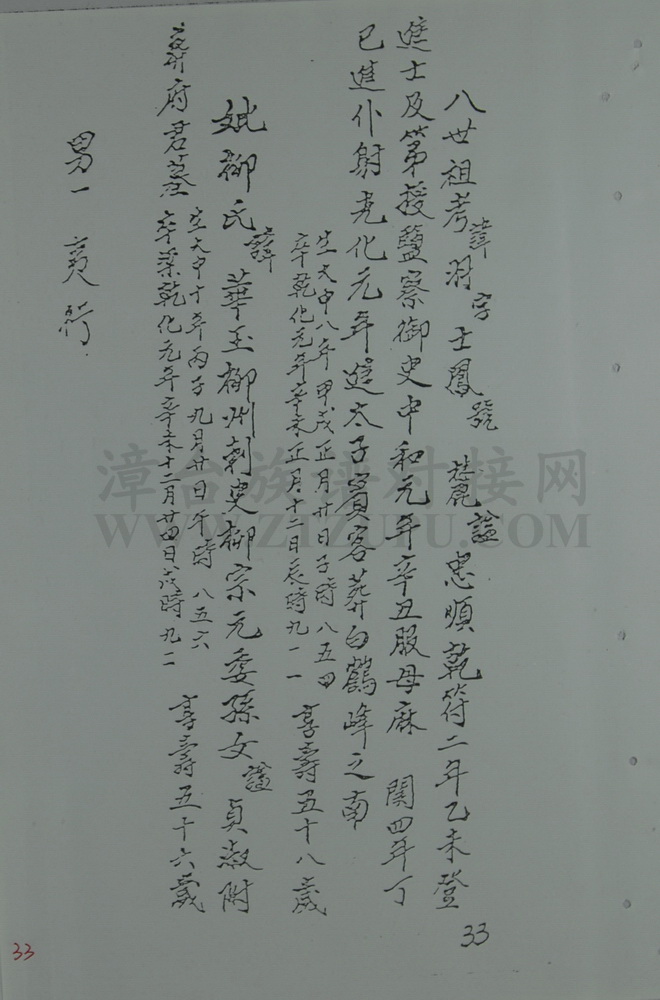 八世祖考諱羽字士鳳號 麓謚忠順乾符二年乙未登
進士及第授監察御史中和元年辛丑服母麻 関四年丁
巳進仆射光化元年進太子賓客葬白鶴峰之南
生大中八年甲戌正月廿日子時 八五四
卒乾化元年辛未正月十二日辰時九一一
享壽五十八歲
妣柳氏諱華玉柳州刺史柳宗元委孫女謚貞淑附
葬府君墓
生大中十年丙子九月廿日午時 八五六
卒梁乾化元年辛未十二月廿四日戌時九一二
享壽五十六歲
男一 衍
33
33
漳台族谱对接网
WWW.ZTZUPU.COM